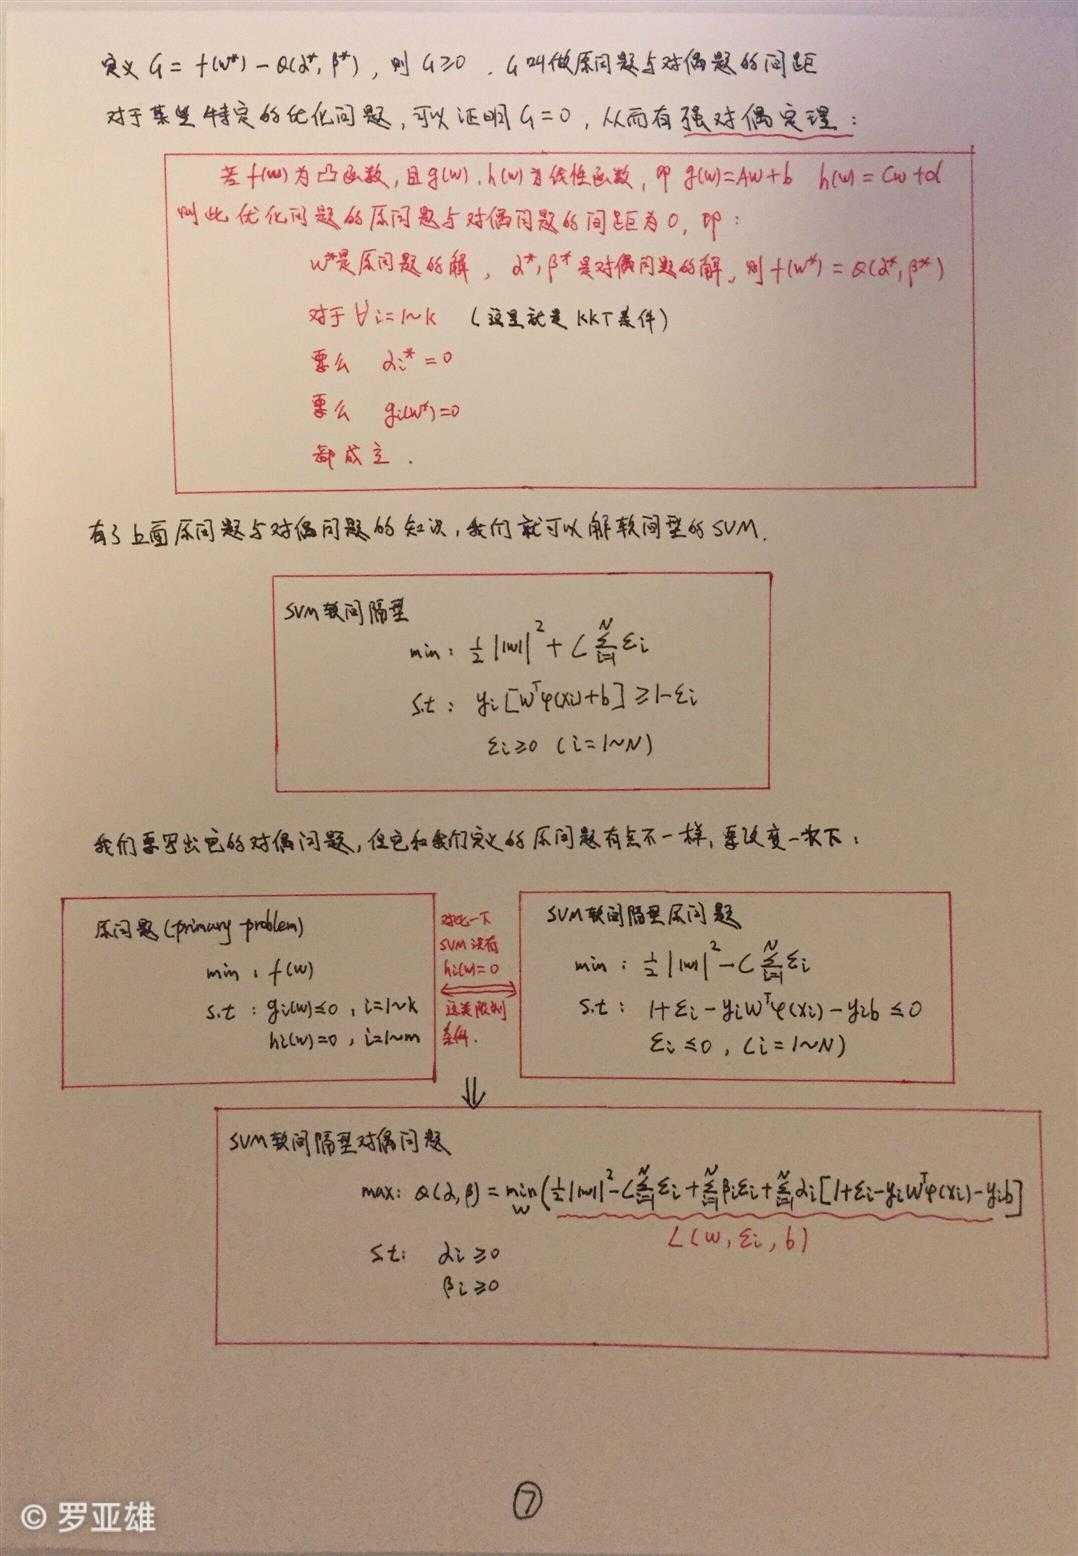 定义 G = f(w*) - Θ(α*, β*), 则 G≥0. G叫做原问题与对偶题的间距
对于某些特定的优化问题, 可以证明G=0, 从而有强对偶定理:
若f(w)为凸函数, 且g(w), h(w)为线性函数, 即 g(w)=Aw+b h(w)=Cw+d
则此优化问题的原问题与对偶问题的间距为0, 即:
w*是原问题的解, α*, β*是对偶问题的解, 则f(w*) = Θ(α*, β*)
对于∀i=1~k (这里就是KKT条件)
要么 αi* = 0
要么 gi(w*)=0
都成立.
有了上面原问题与对偶问题的知识, 我们就可以解软间型的SVM.
SVM软间隔型
min: ½||w||² + C Σ_{i=1}^{N} ξi
s.t: yi[wᵀφ(xi)+b] ≥ 1-ξi
ξi≥0 (i=1~N)
我们要写出它的对偶问题, 但它和我们定义的原问题有点不一样, 要改变一次下:
原问题(primary problem)
min: f(w)
s.t: gi(w)≤0, i=1~k
hi(w)=0, i=1~m
对比一下
SVM没有
hi(w)=0
这类限制
条件.
SVM软间隔型原问题
min: ½||w||² - C Σ_{i=1}^{N} ξi
s.t: 1+ξi-yiwᵀφ(xi)-yib ≤ 0
ξi≤0, (i=1~N)
⇓
SVM软间隔型对偶问题
max: Θ(α,β) = min_w (½||w||² - C Σ_{i=1}^{N} ξi + Σ_{i=1}^{N} βiξi + Σ_{i=1}^{N} αi[1+ξi-yiwᵀφ(xi)-yib]
L(w, ξi, b)
s.t: αi ≥0
βi≥0
⑦
© 罗亚雄